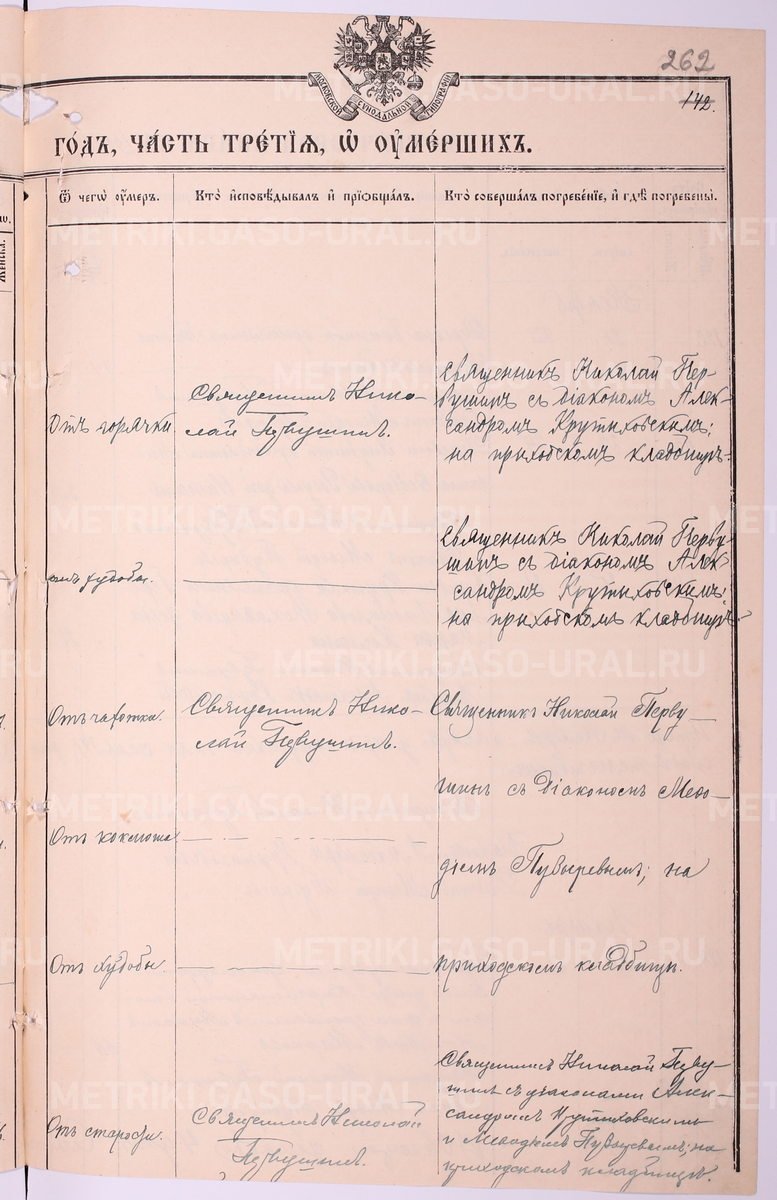 262
142.
МОСКОВСКОЙ СѴНОДАЛЬНОЙ ТИПОГРАФІИ
го́дъ, ча́сть тре́тїѧ, ѡ҆ ᲂу҆ме́ршихъ.
Ѿ чегѡ̀ ᲂу҆́меръ.
Кто̀ и҆сповѣ́дывалъ и҆ прїѡбща́лъ.
Кто̀ соверша́лъ погребе́нїе, и҆ гдѣ̀ погребены̀.
Отъ горячки.
Священникъ Нико-
лай Первушинъ.
Священникъ Николай Пер-
вушинъ съ діакономъ Алек-
сандромъ Крутиховскимъ;
на приходскомъ кладбищѣ.
отъ худобы.
Священникъ Николай Перву-
шинъ съ діакономъ Алек-
сандромъ Крутиховскимъ;
на приходскомъ кладбищѣ.
Отъ чахотки.
Священникъ Нико-
лай Первушинъ.
Священникъ Николай Перву-
шинъ съ діакономъ Меѳо-
діемъ Пузыревымъ; на
приходскомъ кладбищѣ.
Отъ коклюша.
Отъ худобы.
Отъ старости.
Священникъ Николай
Первушинъ.
Священникъ Николай Перву-
шинъ съ діаконами Алек-
сандромъ Крутиховскимъ
и Меѳодіемъ Пузыревымъ; на
приходскомъ кладбищѣ.
METRIKI.GASO-URAL.RU